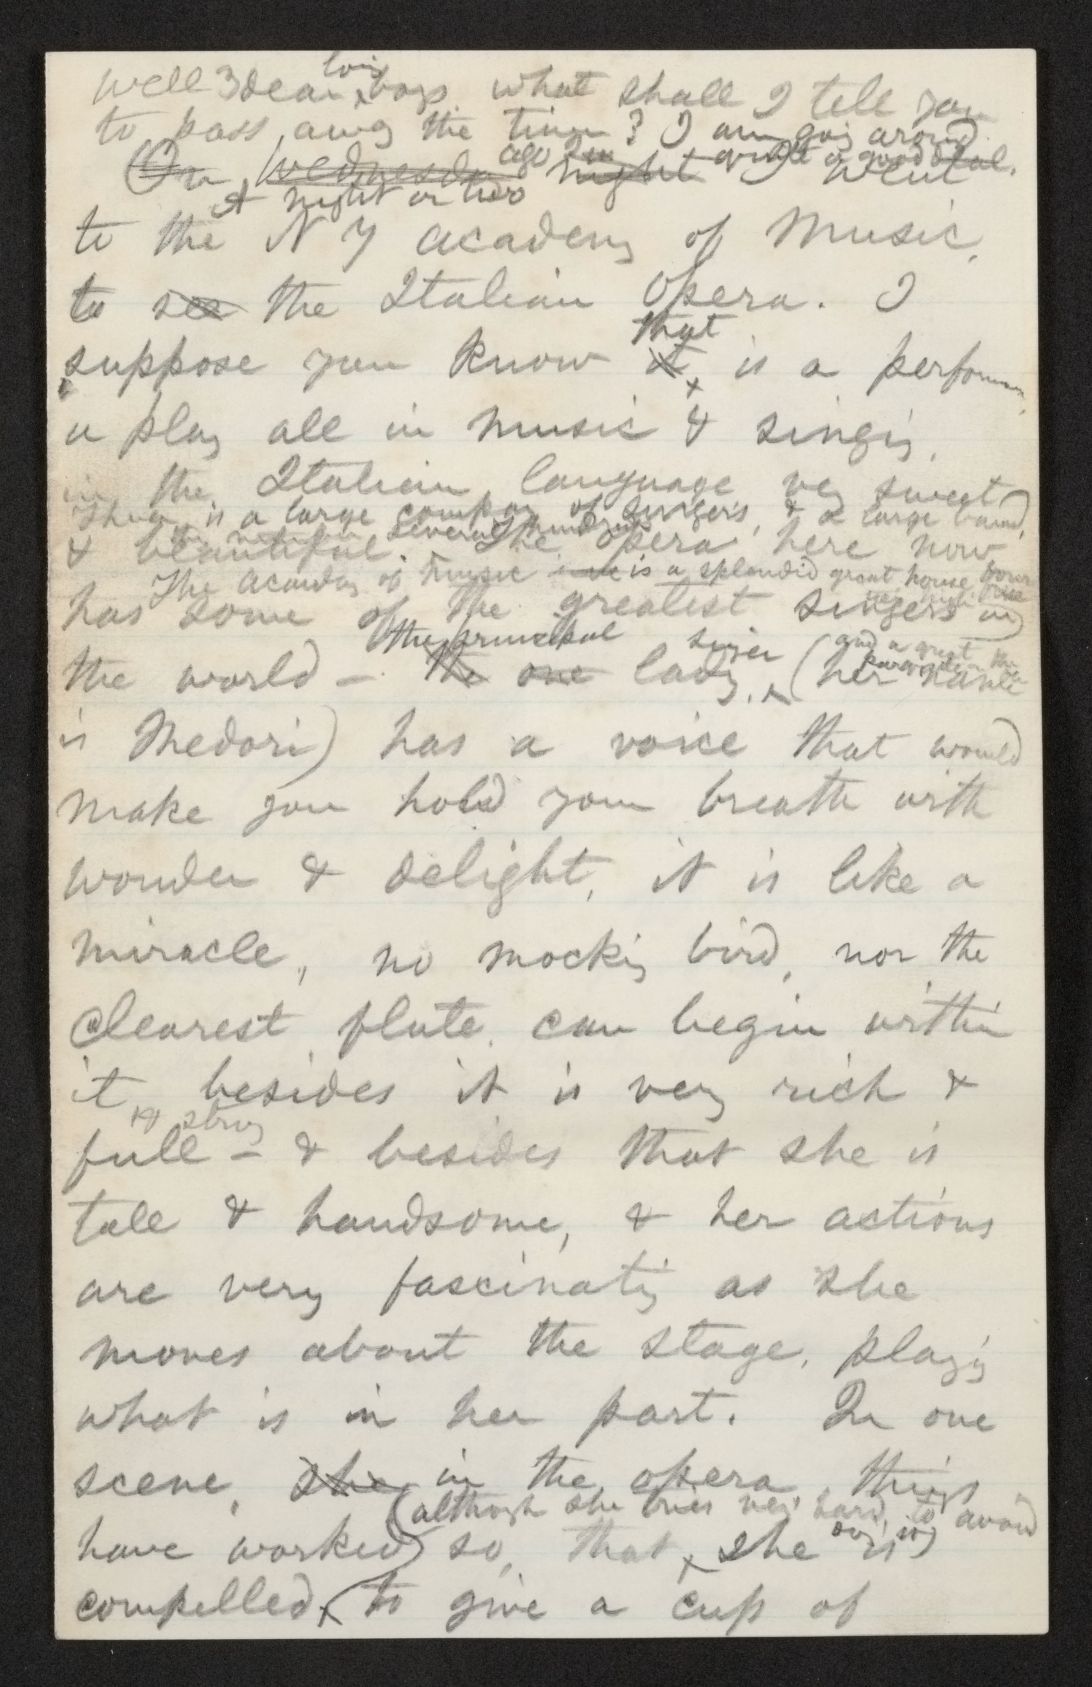 Well dear loving boys what shall I tell you
to pass away the time? I am going around
quite a good deal.
On Wednesday night I went
A night or two ago
to the N Y academy of Music,
to see the Italian Opera. I
suppose you know it that is a performance,
a play all in music & singing,
in the Italian language very sweet
There is a large company of singers, & a large band,
several hundred
& beautiful. The opera here now
The academy of music is a splendid great house
has some of the greatest singers in
the world – the one the principal lady singer (her name
is Medori) has a voice that would
make you hold your breath with
wonder & delight, it is like a
miracle, no mocking bird, nor the
clearest flute can begin with
it, besides it is very rich &
& strong
full – & besides that she is
tall & handsome, & her actions
are very fascinating as she
moves about the stage, playing
what is in her part. In one
scene, she in the opera, things
(although she tries very hard to avoid
doing it)
have worked so, that she is
compelled to give a cup of